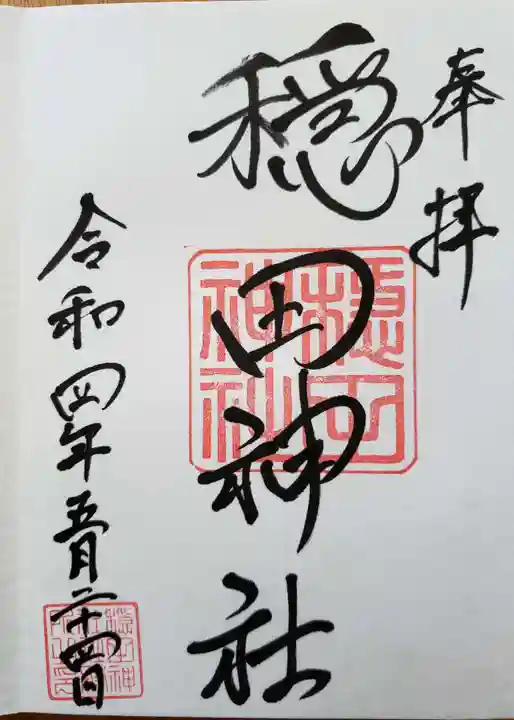 奉拝
穏田神社
穏田
神社
令和四年五月二十四日